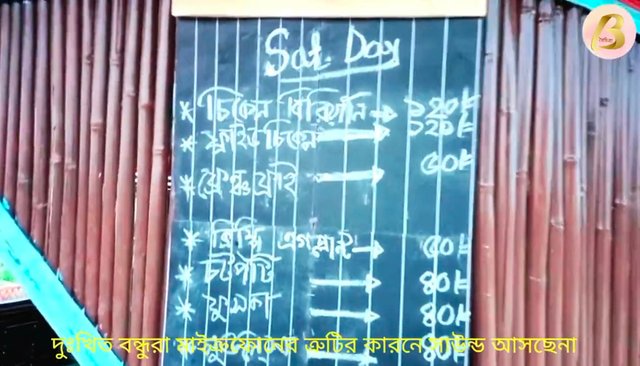 Sat. Day
* চিকেন বিরিয়ানি → ১২০৳
* ফ্রাইড চিকেন → ১২০৳
* ফ্রেঞ্চ ফ্রাই → ৫০৳
* মিস্টি এগ → ৫০৳
* চটপটি → ৪০৳
* ফুসকা → ৪০৳
৪০৳
দুঃখিত বন্ধুরা মাইক্রফোনের ত্রুটির কারনে সাউন্ড আসছেনা